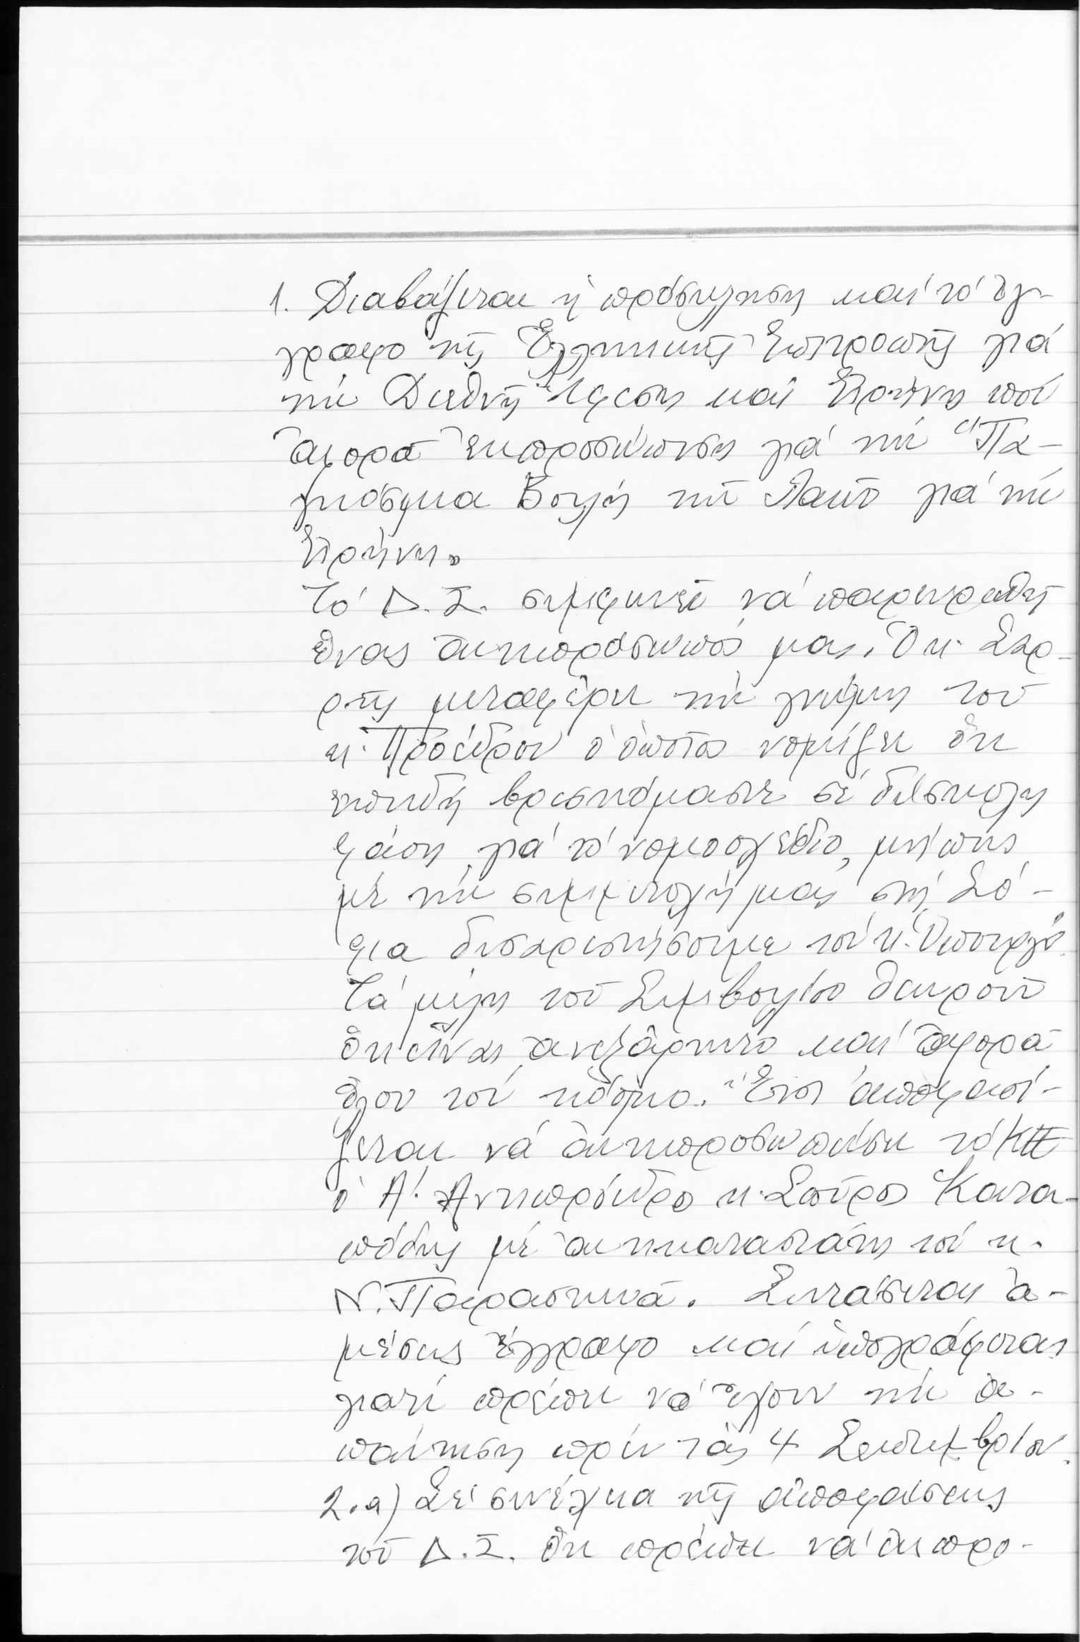 1. Διαβάζεται ἡ πρόσκληση καί τό ἔγ-
γραφο τῆς Ἑλληνικῆς Ἐπιτροπῆς γιά
τήν Διεθνῆ Ὕφεση καί Εἰρήνη πού
ἀφορᾶ ἐκπροσώπηση γιά τήν "Πα-
γκόσμια Βουλή τῶν Λαῶν γιά τήν
Εἰρήνη.
Τό Δ.Σ. συμφωνεῖ νά παρευρεθῆ
ἕνας ἀντιπρόσωπός μας. Ὁ κ. Σαρ-
ρῆς μεταφέρει τήν γνώμη τοῦ
κ. Προέδρου ὁ ὁποῖος νομίζει ὅτι
ἐπειδή βρισκόμαστε σέ δύσκολη
φάση γιά τό νομοσχέδιο, μήπως
μέ τήν συμμετοχή μας στή Σό-
φια δυσαρεστήσουμε τόν κ. Ὑπουργό.
Τά μέλη τοῦ Συμβουλίου θεωροῦν
ὅτι εἶναι ἀνεξάρτητο καί ἀφορᾶ
ὅλον τόν κόσμο. Ἔτσι ἀποφασί-
ζεται νά ἀντιπροσωπεύσει τό
ὁ Α'. Ἀντιπρόεδρος κ. Σπῦρος Κατα-
πόδης μέ ἀντικαταστάτη τόν κ.
Ν. Παρασκευᾶ. Συντάσεται ἀ-
μέσως ἔγγραφο καί ὑπογράφεται
γιατί πρέπει νά ἔχουν τήν ἀ-
πάντηση πρίν τάς 4 Σεπτεμβρίου.
2.α) Σέ συνέχεια τῆς ἀποφάσεως
τοῦ Δ.Σ. ὅτι πρέπει νά ἐκπρο-